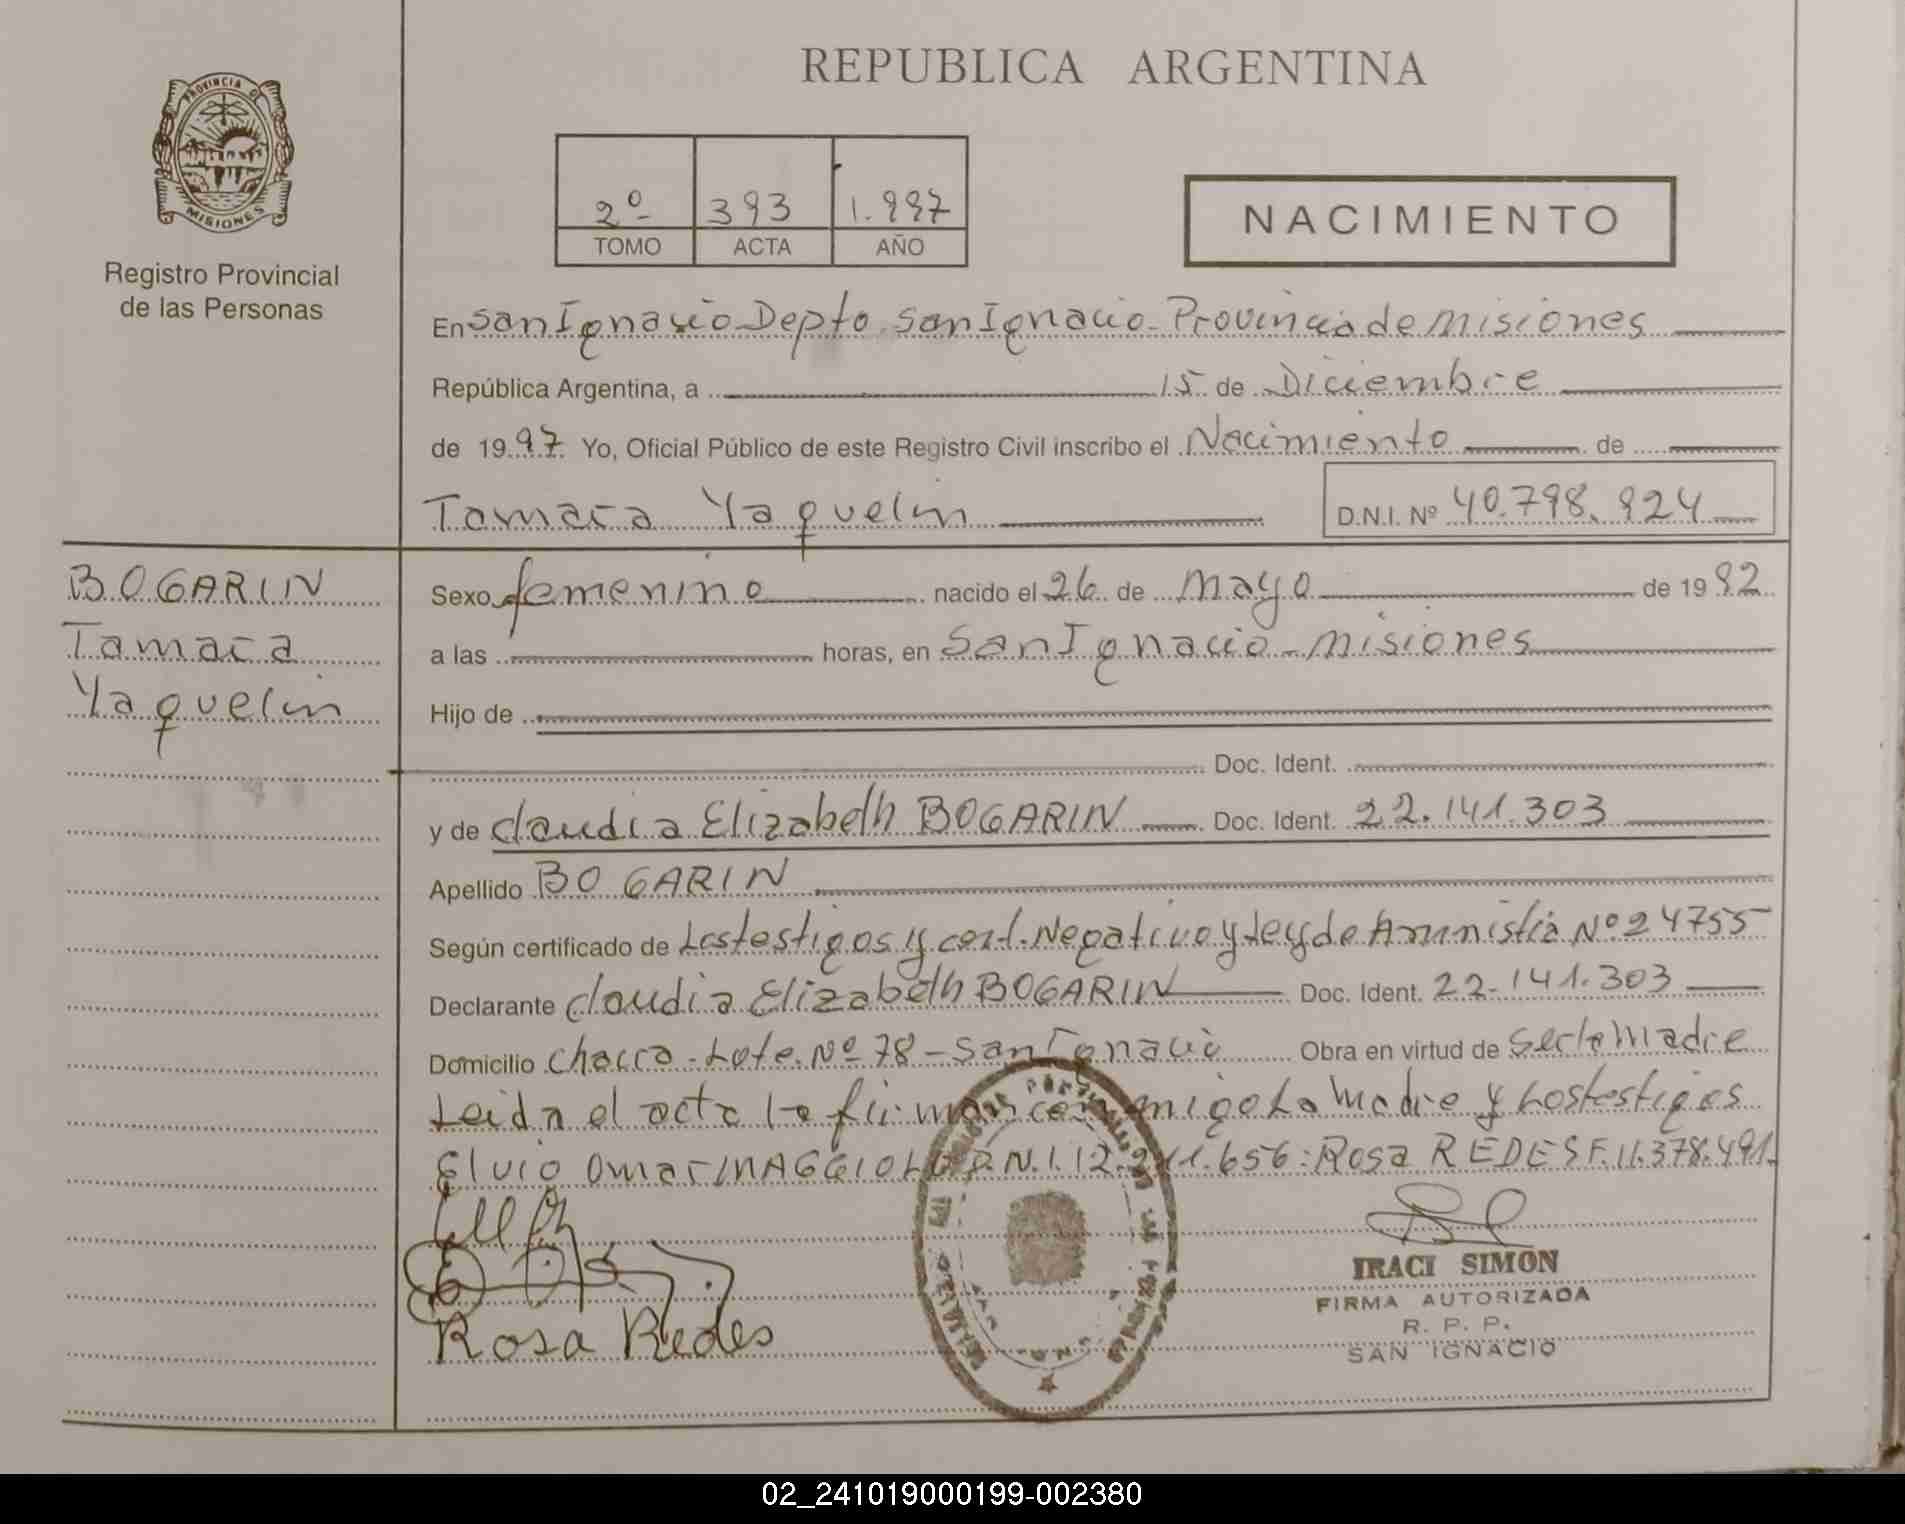 REPUBLICA ARGENTINA
PROVINCIA DE
MISIONES
Registro Provincial
de las Personas
2º 393 1.997
TOMO ACTA AÑO
NACIMIENTO
En San Ignacio Depto San Ignacio - Provincia de Misiones
República Argentina, a 15 de Diciembre
de 1997 Yo, Oficial Público de este Registro Civil inscribo el Nacimiento de
Tamara Yaquelin D.N.I. Nº 40.798.924
BOGARIN
Tamara
Yaquelin
Sexo femenino nacido el 26 de Mayo de 1992
a las horas, en San Ignacio - Misiones
Hijo de
Doc. Ident.
y de Claudia Elizabeth BOGARIN Doc. Ident. 22.141.303
Apellido BOGARIN
Según certificado de Los testigos y cert. Negativo y Ley de Amnistia Nº 24755
Declarante Claudia Elizabeth BOGARIN Doc. Ident. 22.141.303
Domicilio Chacra - Lote Nº 78 - San Ignacio Obra en virtud de Ser la Madre
Leida el acta la firman conmigo La Madre y Los testigos
Elvio Omar MAGGIOLO D.N.I. 12. : Rosa REDES F. 11.378.491.
Rosa Redes
IRACI SIMON
FIRMA AUTORIZADA
R. P. P.
SAN IGNACIO
02_241019000199-002380